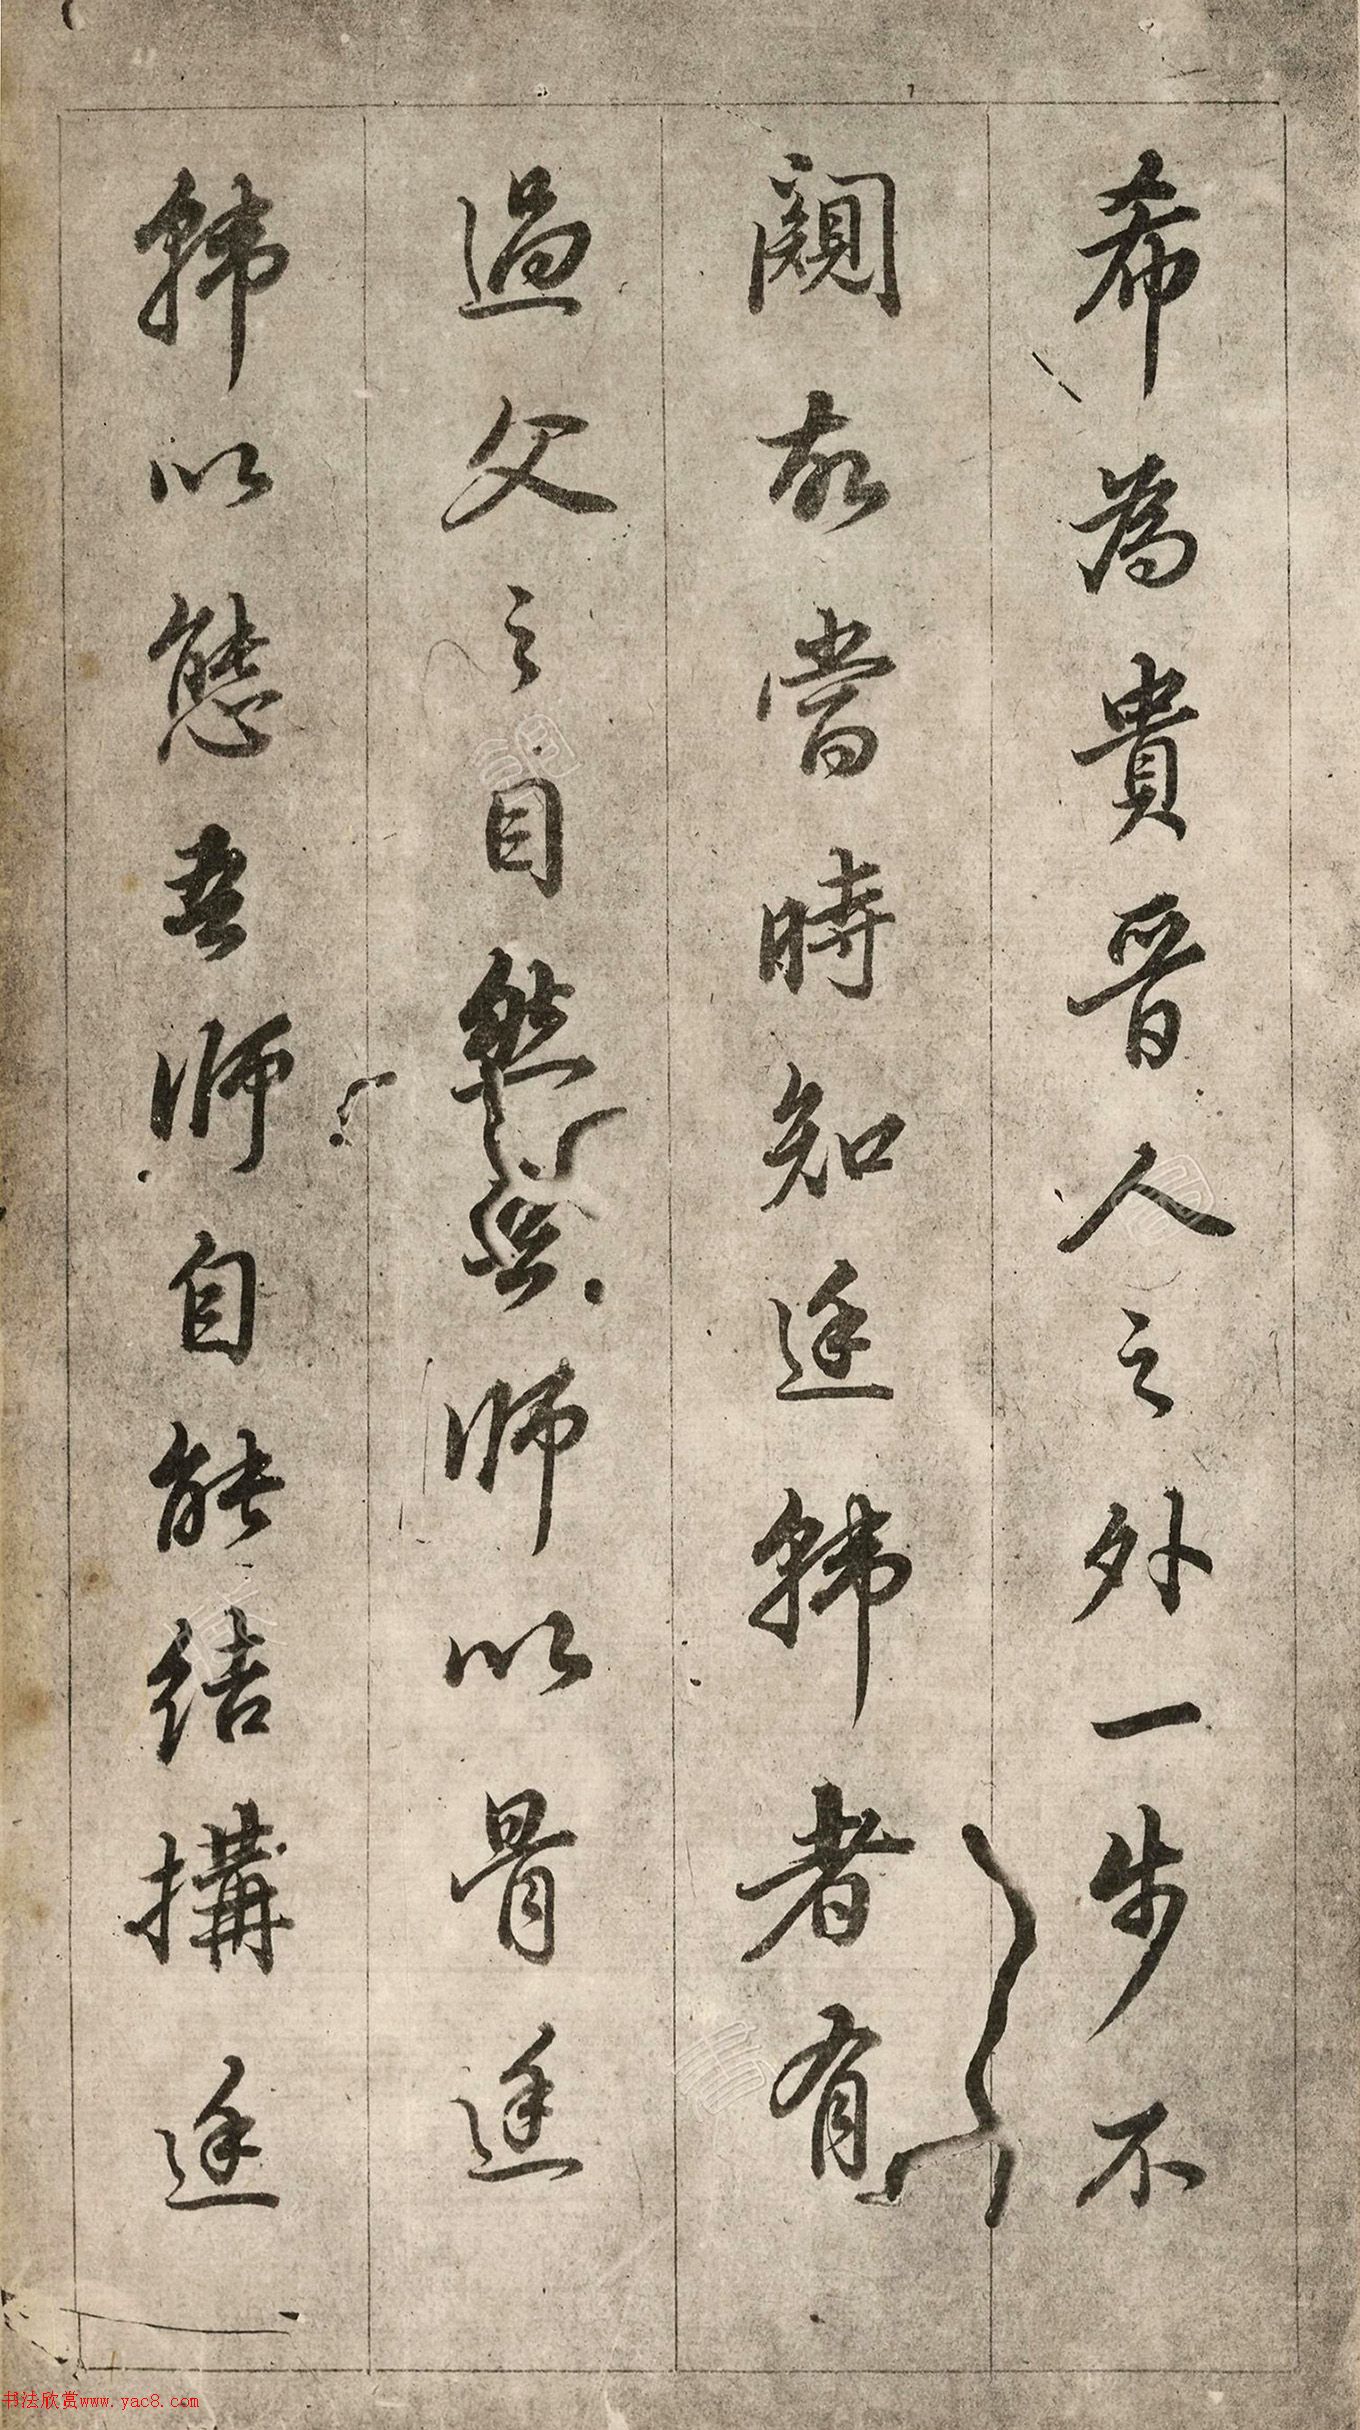 希為貴晉人之外一步不
闚故當時知廷韓者有
過父之目然吾師以骨廷
韓以態吾師自能結搆廷
书法欣赏www.yac8.com